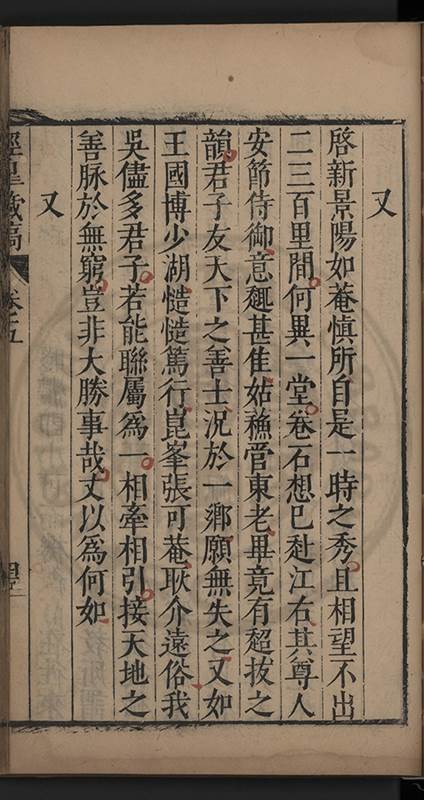 又
啓新景陽如菴愼所自是一時之秀且相望不出
二三百里間何異一堂卷石想已赴江右其尊人
安節侍御意趣甚佳姑蘓管東老畢竟有超拔之
韻君子友天下之善士况於一鄉願無失之又如
王國博少湖慥慥篤行崑峯張可菴耿介遠俗我
吳儘多君子若能聯屬爲一相牽相引接天地之
善脉於無窮豈非大勝事哉丈以爲何如
又
涇臯藏稿
卷之五